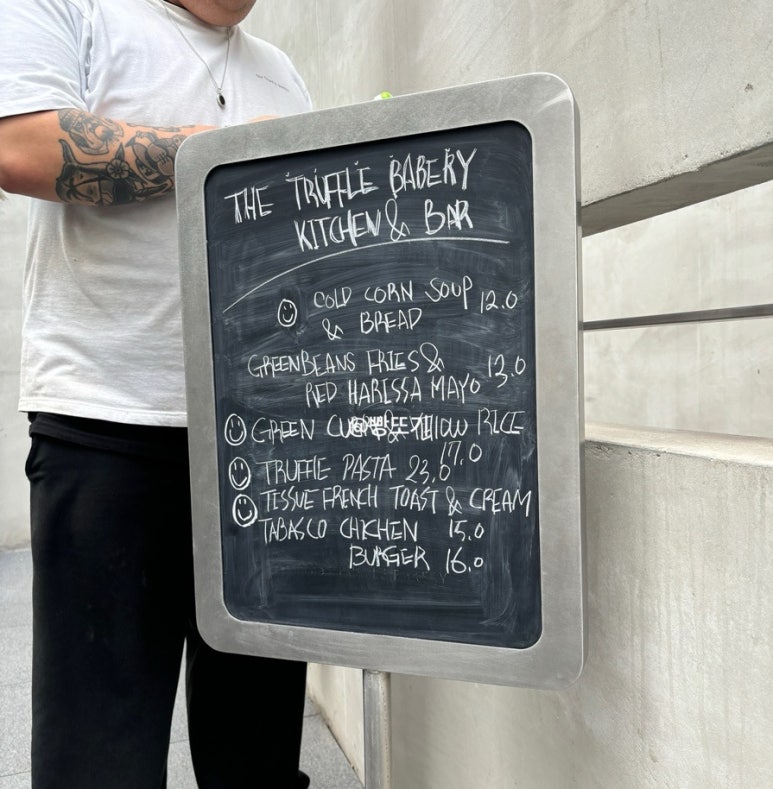 THE TRUFFLE BABERY
KITCHEN & BAR
COLD CORN SOUP 12.0
& BREAD
GREEN BEANS FRIES & 13.0
RED HARISSA MAYO
GREEN & YELLOW RICE
17.0
TRUFFLE PASTA 23.0
TISSUE FRENCH TOAST & CREAM
TABASCO CHICKEN 15.0
BURGER 16.0